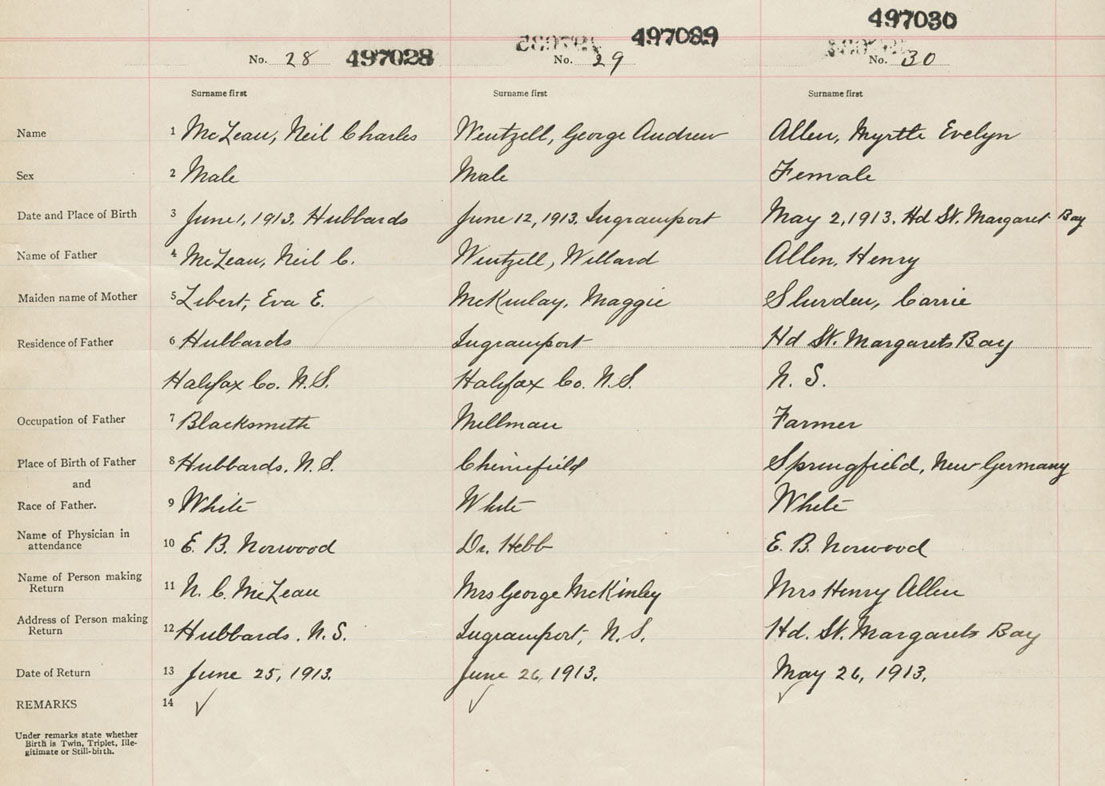 497030
497089
497028
No. 28
No. 29
No. 30
Surname first Surname first Surname first
Name 1 McLean, Neil Charles Wentzell, George Andrew Allen, Myrtle Evelyn
Sex 2 Male Male Female
Date and Place of Birth 3 June 1, 1913. Hubbards June 12, 1913. Ingramport May 2, 1913. Hd St. Margaret Bay
Name of Father 4 McLean, Neil C. Wentzell, Willard Allen, Henry
Maiden name of Mother 5 Libert, Eva E. McKinlay, Maggie Carrie
Residence of Father 6 Hubbards Ingramport Hd St. Margarets Bay
Halifax Co. N.S. Halifax Co. N.S. N. S.
Occupation of Father 7 Blacksmith Millman Farmer
Place of Birth of Father 8 Hubbards. N.S. Springfield, New Germany
and
Race of Father. 9 White White White
Name of Physician in
attendance 10 E. B. Norwood Dr. Hebb E. B. Norwood
Name of Person making
Return 11 N. C. McLean Mrs George McKinley Mrs Henry Allen
Address of Person making
Return 12 Hubbards. N.S. Ingramport, N.S. Hd. St. Margarets Bay
Date of Return 13 June 25, 1913. June 26, 1913. May 26, 1913.
REMARKS 14
Under remarks state whether
Birth is Twin, Triplet, Ille-
gitimate or Still-birth.